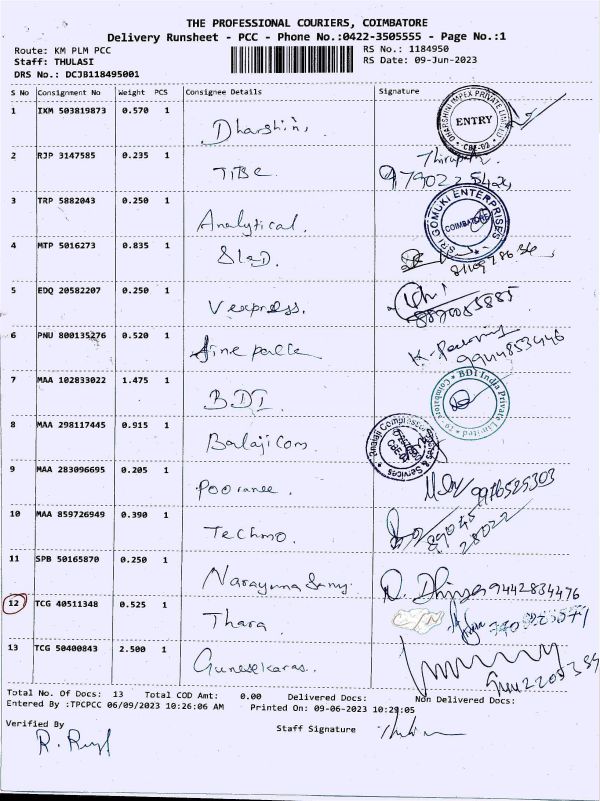 THE PROFESSIONAL COURIERS, COIMBATORE
Delivery Runsheet - PCC - Phone No.:0422-3505555 - Page No.:1
Route: KM PLM PCC
RS No.: 1184950
Staff: THULASI
RS Date: 09-Jun-2023
DRS No.: DCJB118495001
S No Consignment No Weight PCS Consignee Details Signature
1 IXM 503819873 0.570 1 Dharshini
DHARSHINI IMPEX PRIVATE LIMITED ENTRY CBE-02
2 RJP 3147585 0.235 1 TIBC
3 TRP 5882043 0.250 1 Analytical.
SRI GOMUKI ENTERPRISES COIMBATORE
4 MTP 5016273 0.835 1
5 EDQ 20582207 0.250 1 Vexpress.
8870085885
6 PNU 800135276 0.520 1 fine
9944853446
7 MAA 102833022 1.475 1 BDI
BDI India Private Limited Coimbatore
8 MAA 298117445 0.915 1 Balaji Com
& Services
9 MAA 283096695 0.205 1 Pooranee.
9976525303
10 MAA 859726949 0.390 1 Techmo.
89045
28022
11 SPB 50165870 0.250 1
9442834476
12 TCG 40511348 0.525 1 Thara
13 TCG 50400843 2.500 1 Gunasekaras.
Total No. Of Docs: 13 Total COD Amt: 0.00 Delivered Docs: Non Delivered Docs:
Entered By :TPCPCC 06/09/2023 10:26:06 AM Printed On: 09-06-2023 10:29:05
Verified By
Staff Signature